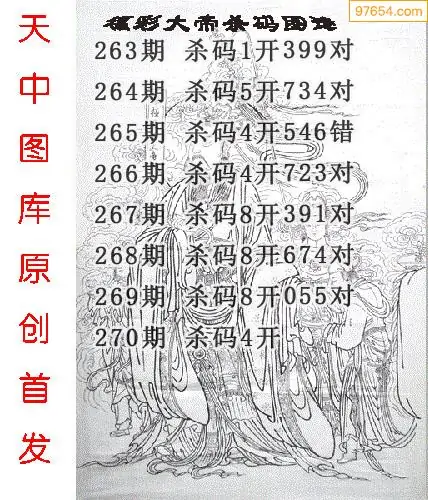 97654.com
福彩大帝杀码图谜
263期 杀码1开399对
264期 杀码5开734对
265期 杀码4开546错
266期 杀码4开723对
267期 杀码8开391对
268期 杀码8开674对
269期 杀码8开055对
270期 杀码4开
天中图库原创首发